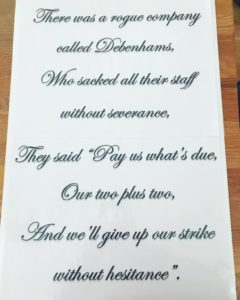 There was a rogue company
called Debenhams,
Who sacked all their staff
without severance,
They said "Pay us what's due,
Our two plus two,
And we'll give up our strike
without hesitance".